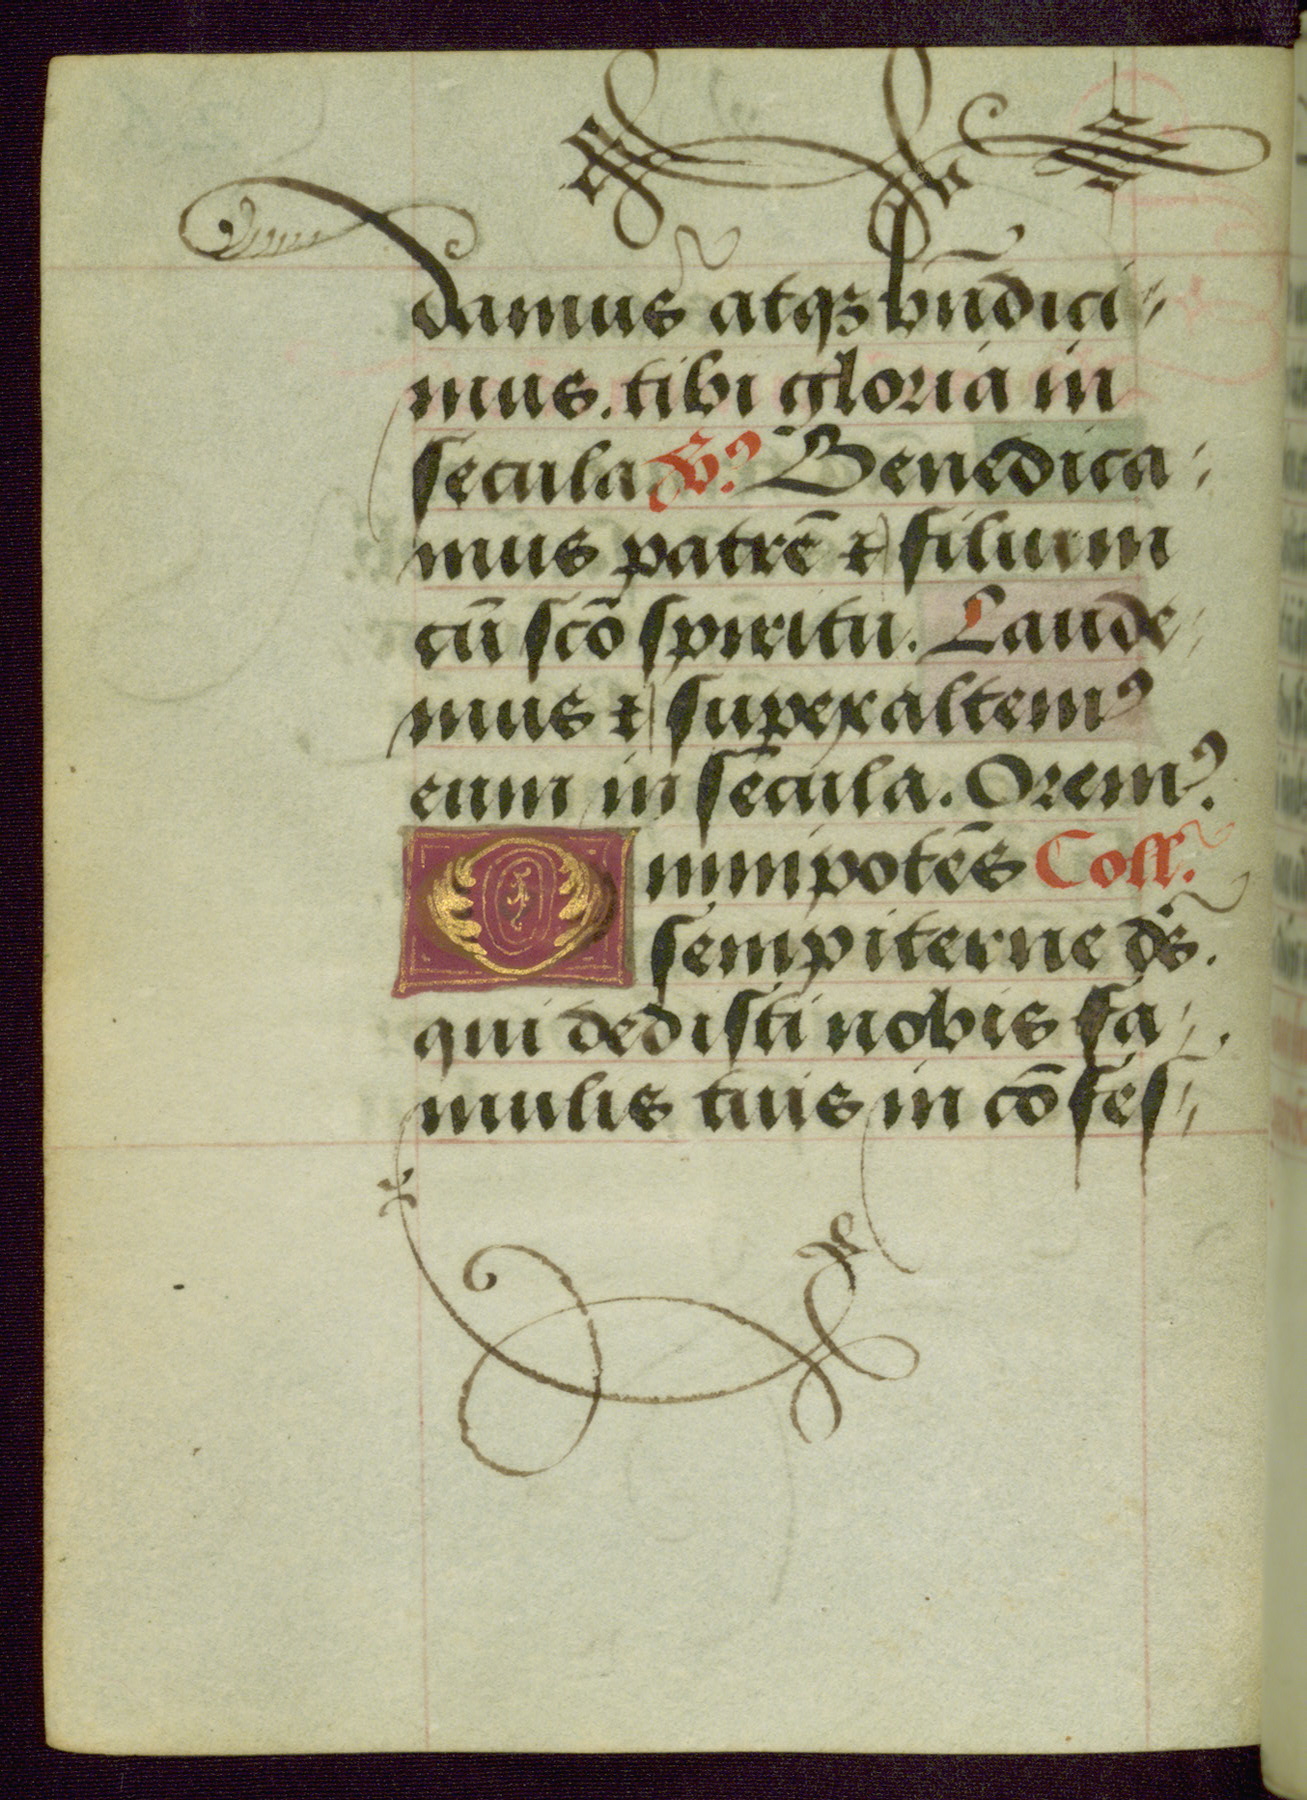 damus atqꝫ bn̄dici-
mus. tibi gloria in
secula ℣? Benedica-
mus patrē ⁊ filium
cū scō spiritu. Laude-
mus ⁊ superaltemꝰ
eum in secula. Oremꝰ.
Omnipotēs Coll.
sempiterne ds̄.
qui dedisti nobis fa-
mulis tuis in cōfes-